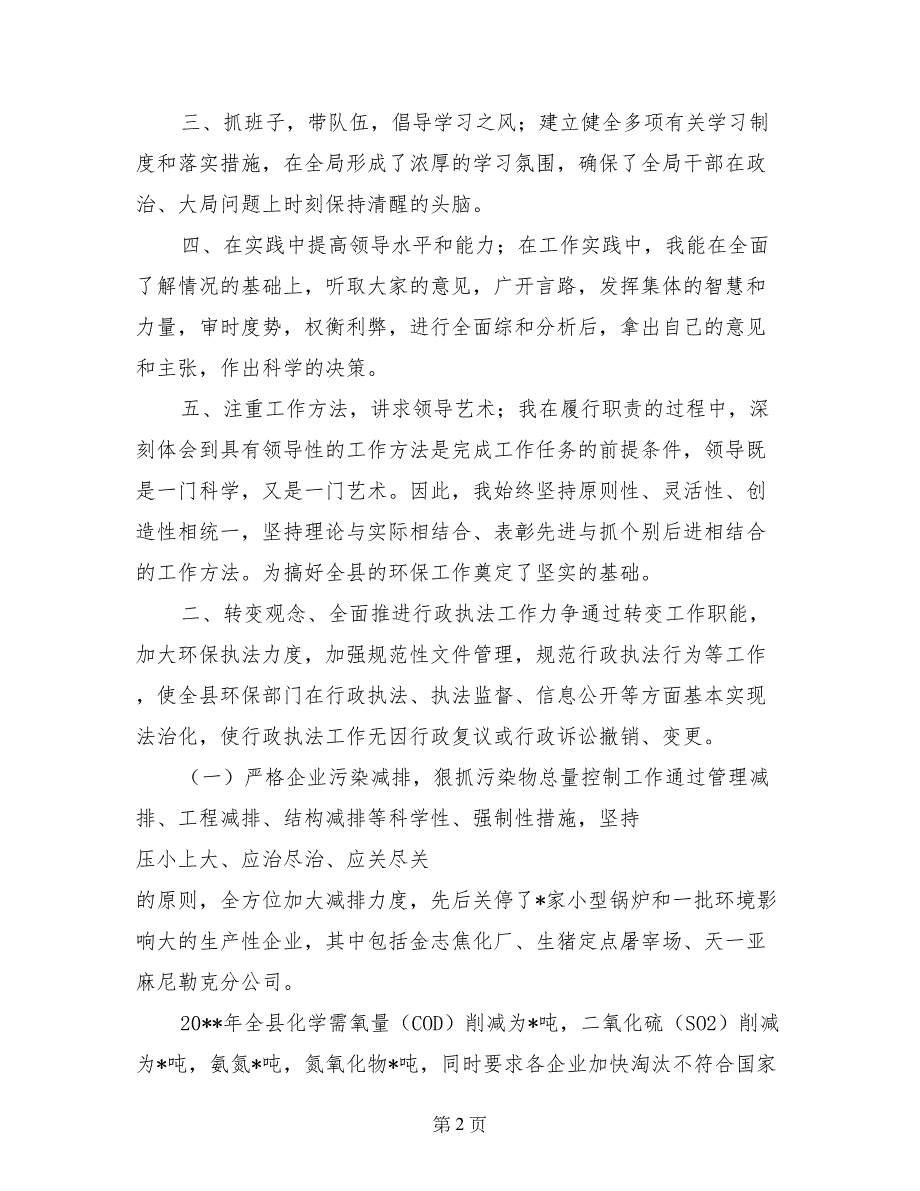 三、抓班子，带队伍，倡导学习之风；建立健全多项有关学习制
度和落实措施，在全局形成了浓厚的学习氛围，确保了全局干部在政
治、大局问题上时刻保持清醒的头脑。
四、在实践中提高领导水平和能力；在工作实践中，我能在全面
了解情况的基础上，听取大家的意见，广开言路，发挥集体的智慧和
力量，审时度势，权衡利弊，进行全面综和分析后，拿出自己的意见
和主张，作出科学的决策。
五、注重工作方法，讲求领导艺术；我在履行职责的过程中，深
刻体会到具有领导性的工作方法是完成工作任务的前提条件，领导既
是一门科学，又是一门艺术。因此，我始终坚持原则性、灵活性、创
造性相统一，坚持理论与实际相结合、表彰先进与抓个别后进相结合
的工作方法。为搞好全县的环保工作奠定了坚实的基础。
二、转变观念、全面推进行政执法工作力争通过转变工作职能，
加大环保执法力度，加强规范性文件管理，规范行政执法行为等工作
，使全县环保部门在行政执法、执法监督、信息公开等方面基本实现
法治化，使行政执法工作无因行政复议或行政诉讼撤销、变更。
（一）严格企业污染减排，狠抓污染物总量控制工作通过管理减
排、工程减排、结构减排等科学性、强制性措施，坚持
压小上大、应治尽治、应关尽关
的原则，全方位加大减排力度，先后关停了*家小型锅炉和一批环境影
响大的生产性企业，其中包括金志焦化厂、生猪定点屠宰场、天一亚
麻尼勒克分公司。
20**年全县化学需氧量（COD）削减为*吨，二氧化硫（SO2）削减
为*吨，氨氮*吨，氮氧化物*吨，同时要求各企业加快淘汰不符合国家
第 2 页